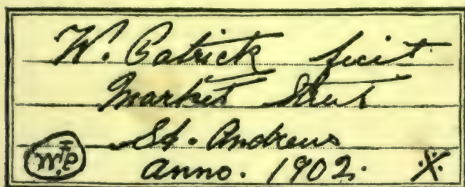 W. Patrick fecit
Market Street
St. Andrews
W.P anno. 1902.